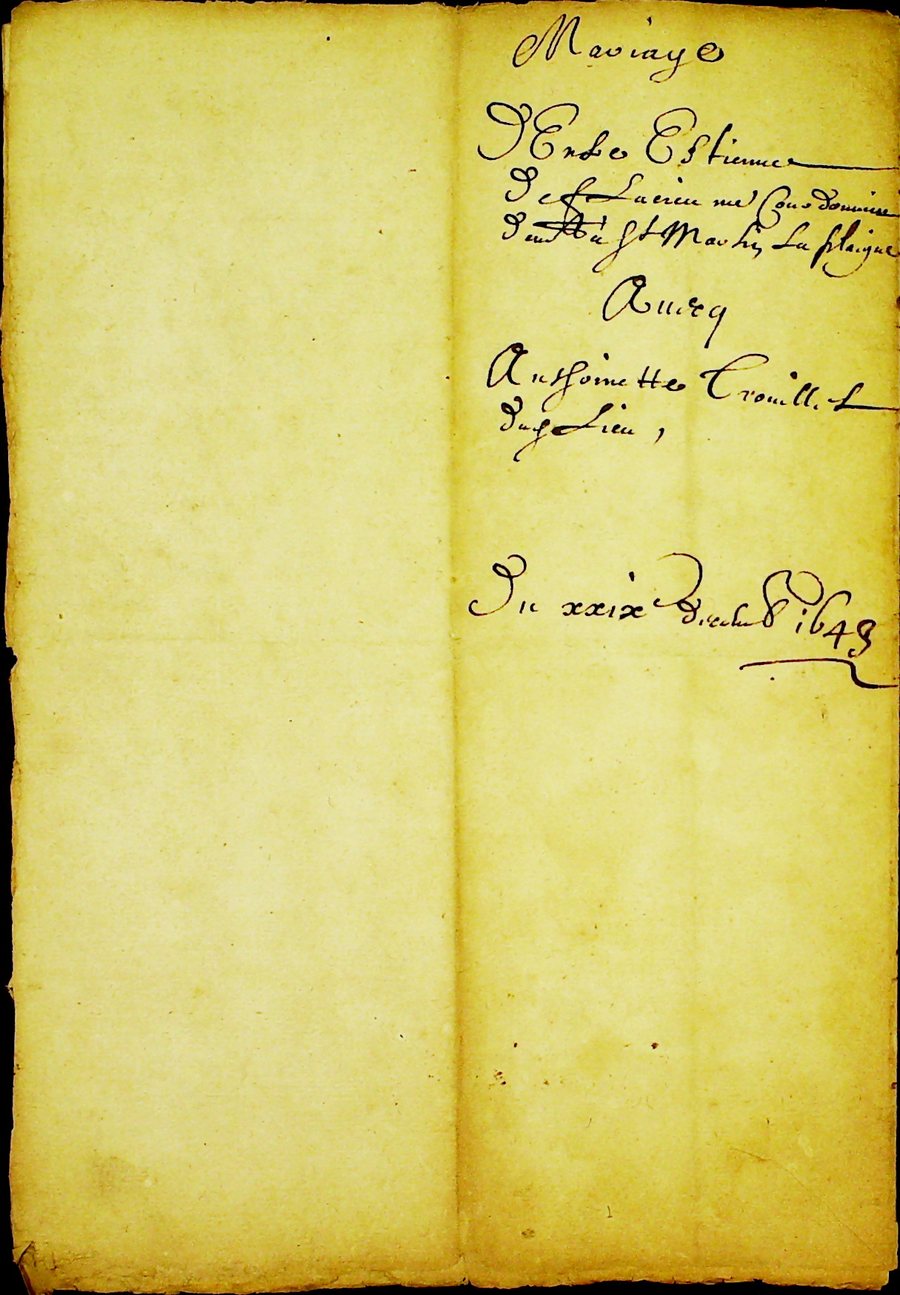 Mariage
D'Entre Estienne
De Lucieu me Cordonnier
demt à St Martin La plaigne
Auecq
Anthoinette Trouillet
dud Lieu,
Du xxixe decemb 1643